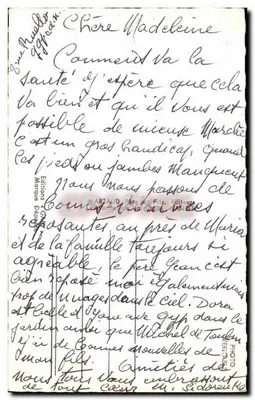 Chère Madeleine
Comment va la
santé j'espère que cela
va bien et qu'il vous est
possible de mieux marcher
c'est un gros handicap, quand
les pieds ou jambes manquent
Nous nous passons de
bonnes vacances
reposantes, auprès de Maria
et de la famille toujours si
agréable, le père Jean s'est
bien reposé moi également
trop de nuages dans le ciel. Dora
est belle et joue avec
jardin ainsi que Michel de Toulon
j'ai de bonnes nouvelles de
mon fils. Amitiés de
nous tous vous embrassent
de tout cœur M.